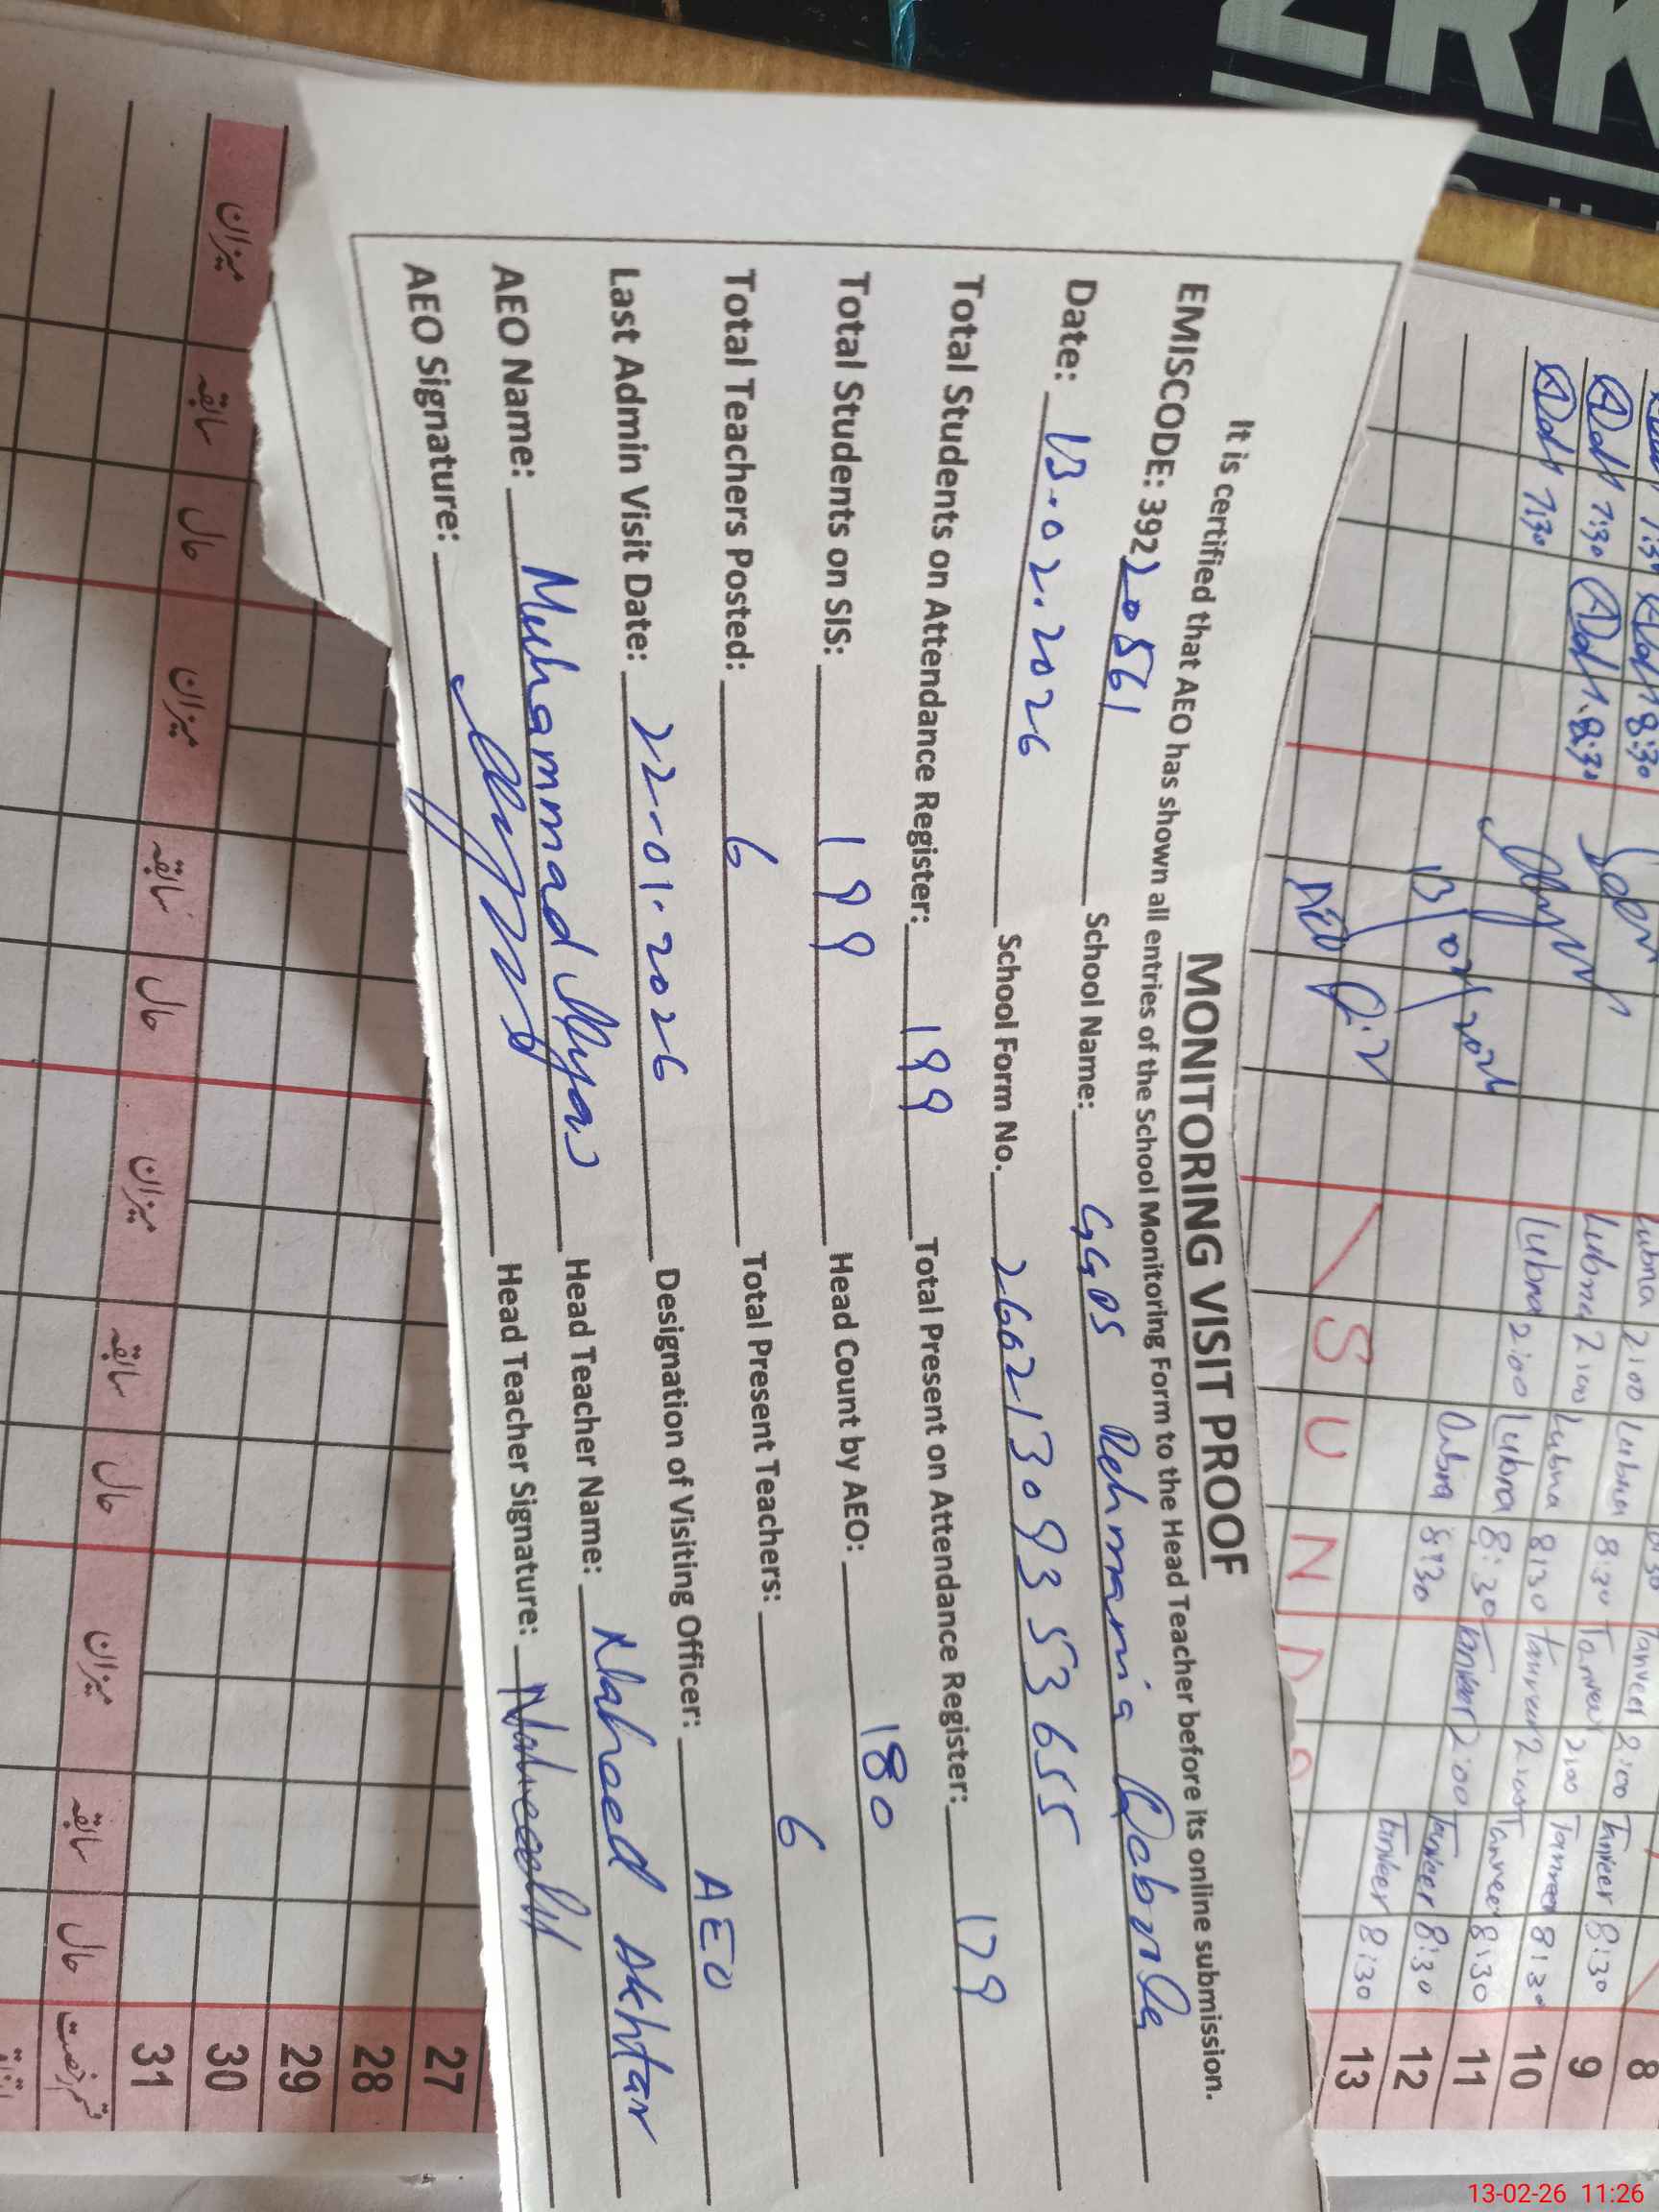 MONITORING VISIT PROOF
It is certified that AEO has shown all entries of the School Monitoring Form to the Head Teacher before its online submission.
EMISCODE: 39220561 School Name: GGPS Rehmania Dabnla
Date: 13.02.2026 School Form No. 26021309353655
Total Students on Attendance Register: 199 Total Present on Attendance Register: 179
Total Students on SIS: 199 Head Count by AEO: 180
Total Teachers Posted: 6 Total Present Teachers: 6
Last Admin Visit Date: 22-01.2026 Designation of Visiting Officer: AEO
AEO Name: Muhammad Ilyas Head Teacher Name: Naheed Akhtar
AEO Signature: Head Teacher Signature: Naheed
8:30 Lubna 2:00 Lubna Tanveer 2:00 Tanveer 8:30 8
7:30 8:30 Lubna 2:00 Lubna 8:30 Tanveer 2:00 Tanveer 8:30 9
7:30 Lubna 2:00 Lubna 8:30 Tanveer 2:00 Tanveer 8:30 10
Lubna 8:30 Tanveer 2:00 Tanveer 8:30 11
13/02/2026 Tanveer 8:30 12
AEO SUNDA 13
27
28
29
30
میزان سابقہ حال میزان سابقہ حال میزان سابقہ حال میزان سابقہ حال 31
قسم رخصت
13-02-26 11:26